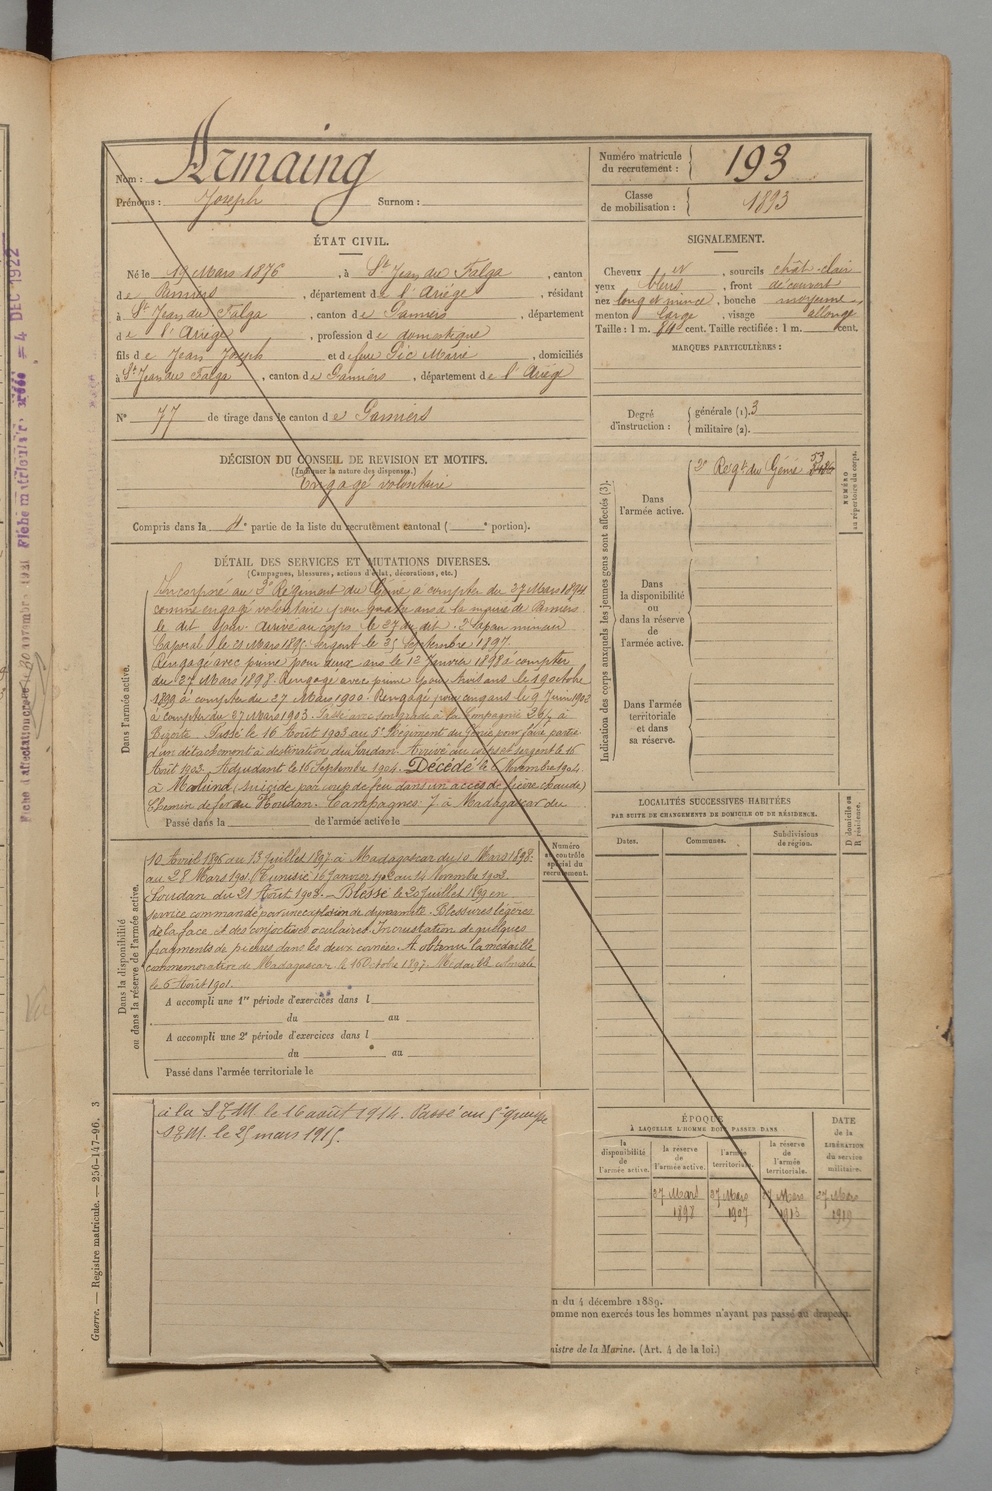 Nom : Armaing
Prénoms : Joseph Surnom :
Numéro matricule du recrutement : 193
Classe de mobilisation : 1893
ÉTAT CIVIL.
Né le 19 Mars 1876, à St Jean du Falga, canton
de Pamiers, département de l'Ariége, résidant
à St Jean du Falga, canton de Pamiers, département
de l'Ariége, profession de domestique
fils de Jean Joseph et de feue Pic Marie, domiciliés
à St Jean du Falga, canton de Pamiers, département de l'Ariége
N° 77 de tirage dans le canton de Pamiers
SIGNALEMENT.
Cheveux et, sourcils chât. clair
yeux bleus, front découvert
nez long et mince, bouche moyenne,
menton large, visage allongé
Taille : 1 m. cent. Taille rectifiée : 1 m. cent.
MARQUES PARTICULIÈRES :
Degré d'instruction : générale (1). 3
militaire (2).
DÉCISION DU CONSEIL DE REVISION ET MOTIFS.
(Indiquer la nature des dispenses.)
Engagé volontaire
Compris dans la 4e partie de la liste du recrutement cantonal ( e portion).
DÉTAIL DES SERVICES ET MUTATIONS DIVERSES.
(Campagnes, blessures, actions d'éclat, décorations, etc.)
Dans l'armée active.
Incorporé au Régiment du Génie à compter du 27 Mars 1894
comme engagé volontaire pour quatre ans à la mairie de Pamiers
le dit jour. Arrivé au corps le 27 du dit. 2e Sapeur mineur
Caporal le 21 Mars 1895. Sergent le 25 Septembre 1897.
Rengagé avec prime pour deux ans le 12 Janvier 1898 à compter
du 27 Mars 1898. Rengagé avec prime pour trois ans le 19 octobre
1899 à compter du 27 Mars 1900. Rengagé pour cinq ans le 9 Juin 1902
à compter du 27 Mars 1903. Passé avec son grade à la Compagnie 26/ à
Bizerte. Passé le 16 Août 1903 au 5e Régiment du Génie pour faire partie
d'un détachement à destination du Soudan. Arrivé au corps et sergent le 16
Août 1903. Adjudant le 16 Septembre 1904. Décédé le 6 Novembre 1904
à (suicide par coup de feu dans un accès de fièvre chaude)
Chemin de fer au Soudan. Campagnes : à Madagascar du
Passé dans la de l'armée active le
Dans la disponibilité ou dans la réserve de l'armée active.
10 Avril 1895 au 13 Juillet 1897 à Madagascar du 10 Mars 1898
au 28 Mars 1901. Tunisie 16 Janvier 1902 au 14 Novembre 1902.
Soudan du 21 Août 1903. Blessé le 20 Juillet 1899 en
service commandé par une explosion de dynamite. Blessures légères
de la face et des conjonctives oculaires. Incrustation de quelques
fragments de pierres dans les deux cornées. A obtenu la médaille
commémorative de Madagascar le 16 Octobre 1897. Médaille coloniale
le 6 Août 1901.
A accompli une 1re période d'exercices dans l
du au
A accompli une 2e période d'exercices dans l
du au
Passé dans l'armée territoriale le
Numéro au contrôle spécial du recrutement.
à la S.T.M. le 16 août 1914. Passé au 5e groupe
S.T.M. le 25 mars 1915.
Indication des corps auxquels les jeunes gens sont affectés (3).
Dans l'armée active.
2e Regt du Génie
NUMÉRO au répertoire du corps.
Dans la disponibilité ou dans la réserve de l'armée active.
Dans l'armée territoriale et dans sa réserve.
LOCALITÉS SUCCESSIVES HABITÉES
PAR SUITE DE CHANGEMENTS DE DOMICILE OU DE RÉSIDENCE.
Dates. Communes. Subdivisions de région.
D domicile ou R résidence.
ÉPOQUE
À LAQUELLE L'HOMME DOIT PASSER DANS
DATE de la LIBÉRATION du service militaire.
la disponibilité de l'armée active.
la réserve de l'armée active.
l'armée territoriale.
la réserve de l'armée territoriale.
27 Mars 27 Mars 27 Mars 27 Mars
1898 1907 1913 1919
n du 4 décembre 1889.
omme non exercés tous les hommes n'ayant pas passé au drapeau.
nistre de la Marine. (Art. 4 de la loi.)
Guerre. — Registre matricule. — 256-147-96. 3